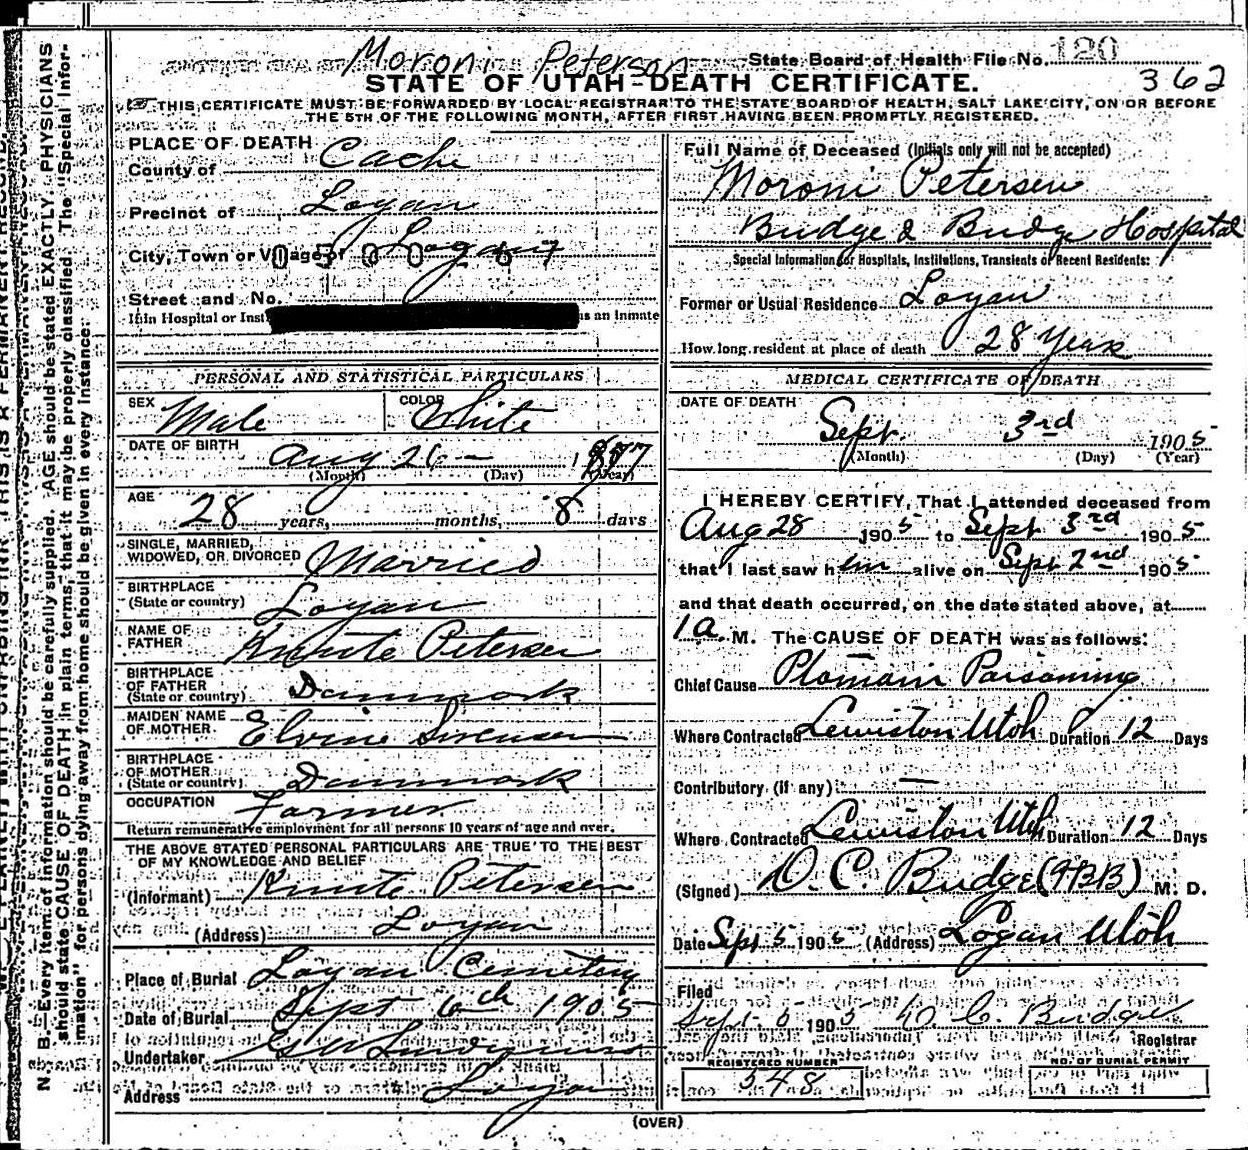 Moroni Peterson State Board of Health File No. 120
STATE OF UTAH-DEATH CERTIFICATE. 362
THIS CERTIFICATE MUST BE FORWARDED BY LOCAL REGISTRAR TO THE STATE BOARD OF HEALTH, SALT LAKE CITY, ON OR BEFORE
THE 5TH OF THE FOLLOWING MONTH, AFTER FIRST HAVING BEEN PROMPTLY REGISTERED.
PLACE OF DEATH
County of Cache
Precinct of Logan
City, Town or Village of Logan
Street and No.
If in Hospital or Inst as an Inmate
PERSONAL AND STATISTICAL PARTICULARS
SEX Male COLOR White
DATE OF BIRTH Aug 26 - 1877
(Month) (Day) (Year)
AGE 28 years, months, 8 days
SINGLE, MARRIED,
WIDOWED, OR DIVORCED Married
BIRTHPLACE
(State or country) Logan
NAME OF
FATHER Knute Petersen
BIRTHPLACE
OF FATHER
(State or country) Danmark
MAIDEN NAME
OF MOTHER Elvine Sorensen
BIRTHPLACE
OF MOTHER
(State or country) Danmark
OCCUPATION Farmer
Return remunerative employment for all persons 10 years of age and over.
THE ABOVE STATED PERSONAL PARTICULARS ARE TRUE TO THE BEST
OF MY KNOWLEDGE AND BELIEF
(Informant) Knute Petersen
(Address) Logan
Place of Burial Logan Cemetery
Date of Burial Sept 6th 1905
Undertaker
Address Logan
Full Name of Deceased (Initials only will not be accepted)
Moroni Petersen
Budge & Budge Hospital
Special Information for Hospitals, Institutions, Transients or Recent Residents:
Former or Usual Residence Logan
How long resident at place of death 28 Years
MEDICAL CERTIFICATE OF DEATH
DATE OF DEATH
Sept. 3rd 1905
(Month) (Day) (Year)
I HEREBY CERTIFY, That I attended deceased from
Aug 28 1905 to Sept 3rd 1905
that I last saw him alive on Sept 2nd 1905
and that death occurred, on the date stated above, at
1 a. M. The CAUSE OF DEATH was as follows:
Chief Cause Ptomain Poisoning
Where Contracted Lewiston Utah Duration 12 Days
Contributory (if any) —
Where Contracted Lewiston Utah Duration 12 Days
(Signed) D. C. Budge M. D.
Date Sept 5 1905 (Address) Logan Utah
Filed
Sept. 5 1905 D. C. Budge
Registrar
REGISTERED NUMBER NO. OF BURIAL PERMIT
548
(OVER)
N. B. Every item of information should be carefully supplied. AGE should be stated EXACTLY. PHYSICIANS
should state CAUSE OF DEATH in plain terms, that it may be properly classified. The "Special Infor-
mation" for persons dying away from home should be given in every instance.